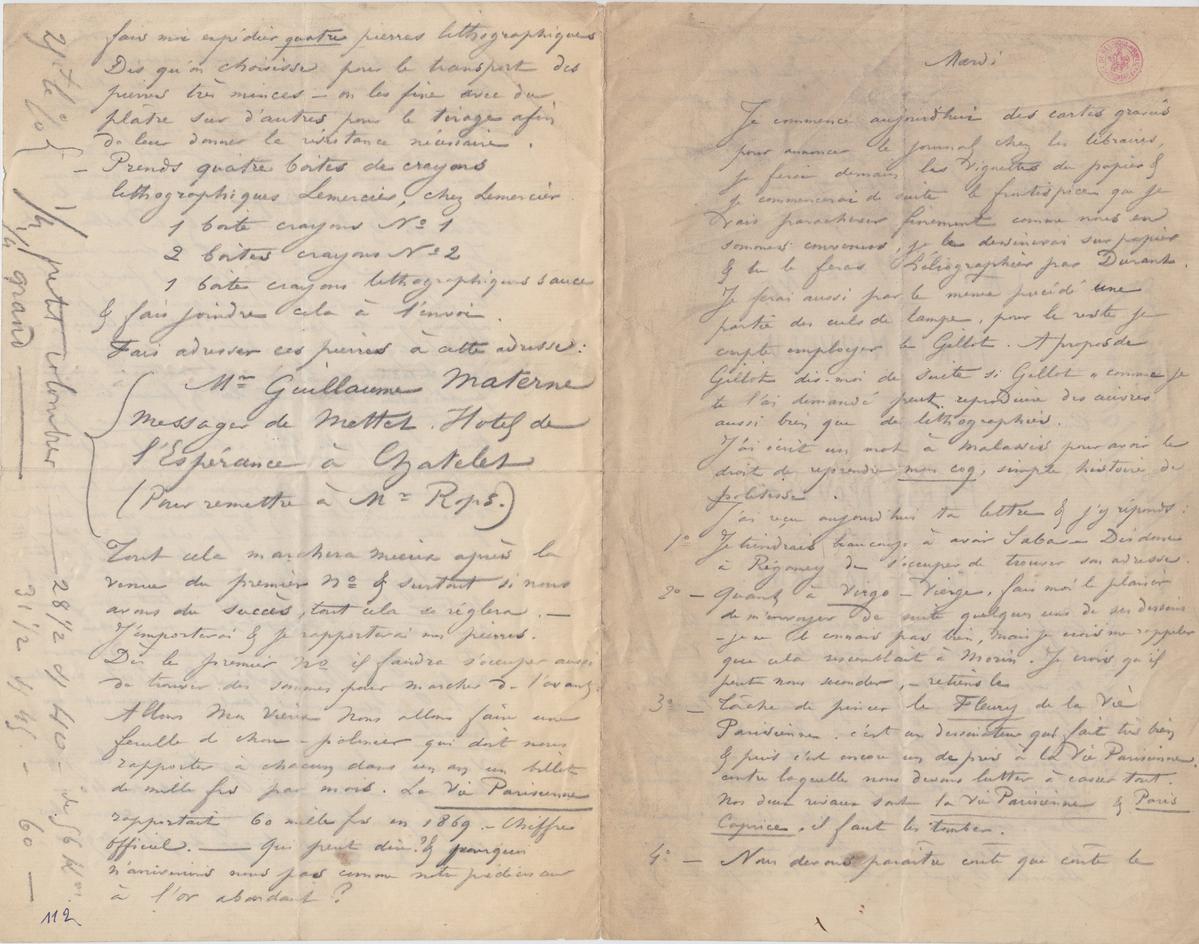 Mardi
Je commence aujourd'hui des cartes gravés
pour annoncer le journal chez les libraires,
je ferai demain les vignettes du papier &
je commencerai de suite le frontispice que je
vais parachever finement comme nous en
sommes convenus, je le dessinerai sur papier
& tu le feras héliographier par Durand.
Je ferai aussi par le même procédé une
partie des culs de lampe, pour le reste je
compte employer le Gillot. A propos de
Gillot dis-moi de suite si Gillot " comme je
te l'ai demandé peut reproduire des œuvres
aussi bien que de lithographier.
J'ai écrit un mot à Malassis pour avoir le
droit de reprendre mon coq, simple histoire de
politesse.
J'ai reçu aujourd'hui ta lettre & j'y réponds :
1º Je tiendrais beaucoup à avoir
à Régamey de s'occuper de trouver son adresse.
2º — Quant à Virgo - Vierge, fais moi le plaisir
de m'envoyer de suite quelques uns de ses dessins
- je ne le connais pas bien, mais je crois me rappeler
que cela ressemblait à Morin. Je crois qu'il
peut nous seconder, - retiens le
3º — Tâche de pincer le Fleury de la Vie
Parisienne. c'est un dessinateur qui fait très bien
& puis c'est encore un de pris à la Vie Parisienne.
contre laquelle nous devons lutter à casser tout.
Nos deux rivaux sont la Vie Parisienne & Paris
Caprice, il faut les tomber.
4º — Nous devons paraître coûte que coûte le
fais moi expédier quatre pierres lithographiques
Dis qu'on choisisse pour le transport des
pierres très minces — on les fixe avec du
plâtre sur d'autres pour le tirage afin
de leur donner la résistance nécessaire.
— Prends quatre boites de crayons
lithographiques Lemercier, chez Lemercier
1 boite crayons Nº 1
2 boites crayons Nº 2
1 boites crayons lithographiques sauce
& fais joindre cela à l'envoi.
Fais adresser ces pierres à cette adresse :
Mr Guillaume Materne
Messager de Mettet. Hotel de
l'Espérance à Chatelet
(Pour remettre à Mr Rops.)
Tout cela marchera mieux après la
venue du premier Nº & surtout si nous
avons du succès, tout cela se règlera. —
J'emporterai & je rapporterai mes pierres.
Dès le premier nº il faudra s'occuper aussi
de trouver des sommes pour marcher de l'avant.
Allons Mon Vieux Nous allons faire une
feuille de chou - policier qui doit nous
rapporter à chacun dans un an un billet
de mille frs par mois. La Vie Parisienne
rapportait 60 mille frs en 1869 - Chiffre
officiel. — Qui peut dire? & pourquoi
n'arriverions nous pas comme notre prédécesseur
à l'or abondant ?
1/2 petit colombier — 28 1/2 s/ 40 -
1/4 grand — 31 1/2 s/ 45 - 60 —
112